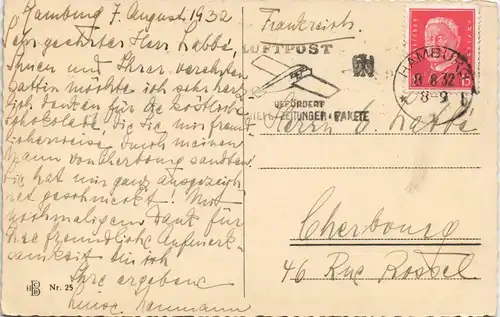 Hamburg 7. August 1932
Sehr geehrter Herr Labbé,
Ihnen und Ihrer verehrten
Gattin möchte ich sehr herz-
lich danken für die köstliche
Schokolade, die Sie mir freund-
licherweise durch meinen
Mann von Cherbourg sandten.
Sie hat mir ganz ausgezeich-
net geschmeckt! Mit
nochmaligem Dank für
Ihre freundliche Aufmerk-
samkeit bin ich
Ihre ergebene
Luise Neumann
HBS Nr. 25
Frankreich.
LUFTPOST
BEFÖRDERT
BRIEFE·ZEITUNGEN·PAKETE
HAMBURG
8.8.32
8-9
15
Herrn C. Labbé
Cherbourg
46 Rue Rossel